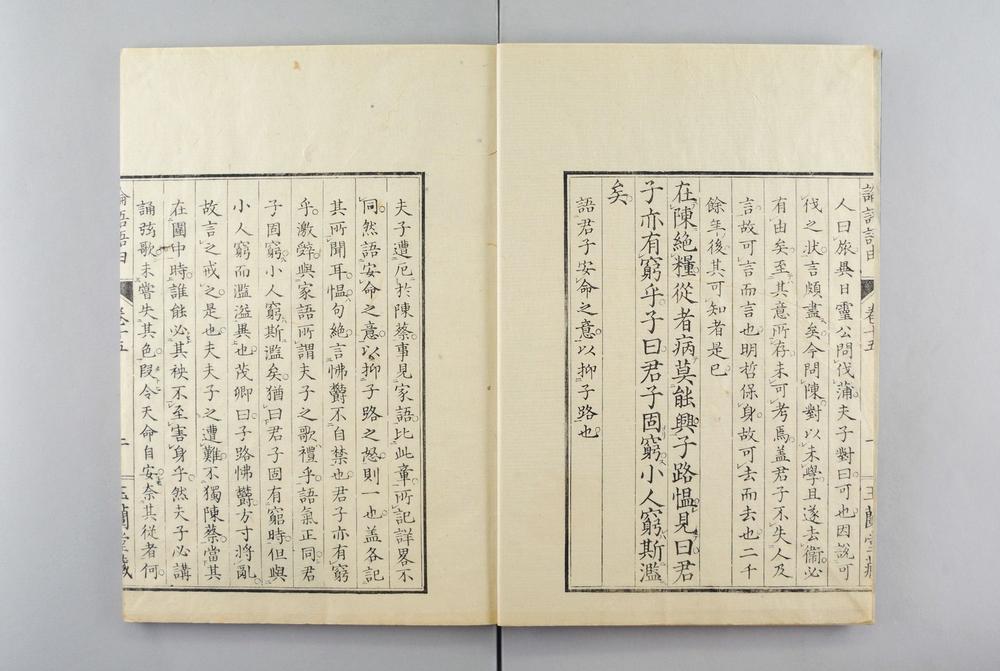 人曰旅異日靈公問伐蒲夫子對曰可也因說可
伐之狀言頗盡矣今問陳對以未學且遂去衞必
有由矣至其意所存未可考焉盖君子不失人及
言故可言而言也明哲保身故可去而去也二千
餘年後其可知者是已
在陳絶糧從者病莫能興子路慍見曰君
子亦有窮乎子曰君子固窮小人窮斯濫
矣
語君子安命之意以抑子路也
夫子遭厄於陳蔡事見家語比此章所記詳畧不
同然語安命之意以抑子路之怒則一也盖各記
其所聞耳慍句絶言怫欝不自禁也君子亦有窮
乎激辤與家語所謂夫子之歌禮乎語氣正同君
子固窮小人窮斯濫矣猶曰君子固有窮時但與
小人窮而濫溢異也茂卿曰子路怫欝方寸將亂
故言之戒之是也夫夫子之遭難不獨陳蔡當其
在圍中時誰能必其殃不至害身乎然夫子必講
誦弦歌未嘗失其色叚令天命自安奈其從者何
論語語由 卷十五 二 玉蘭堂藏